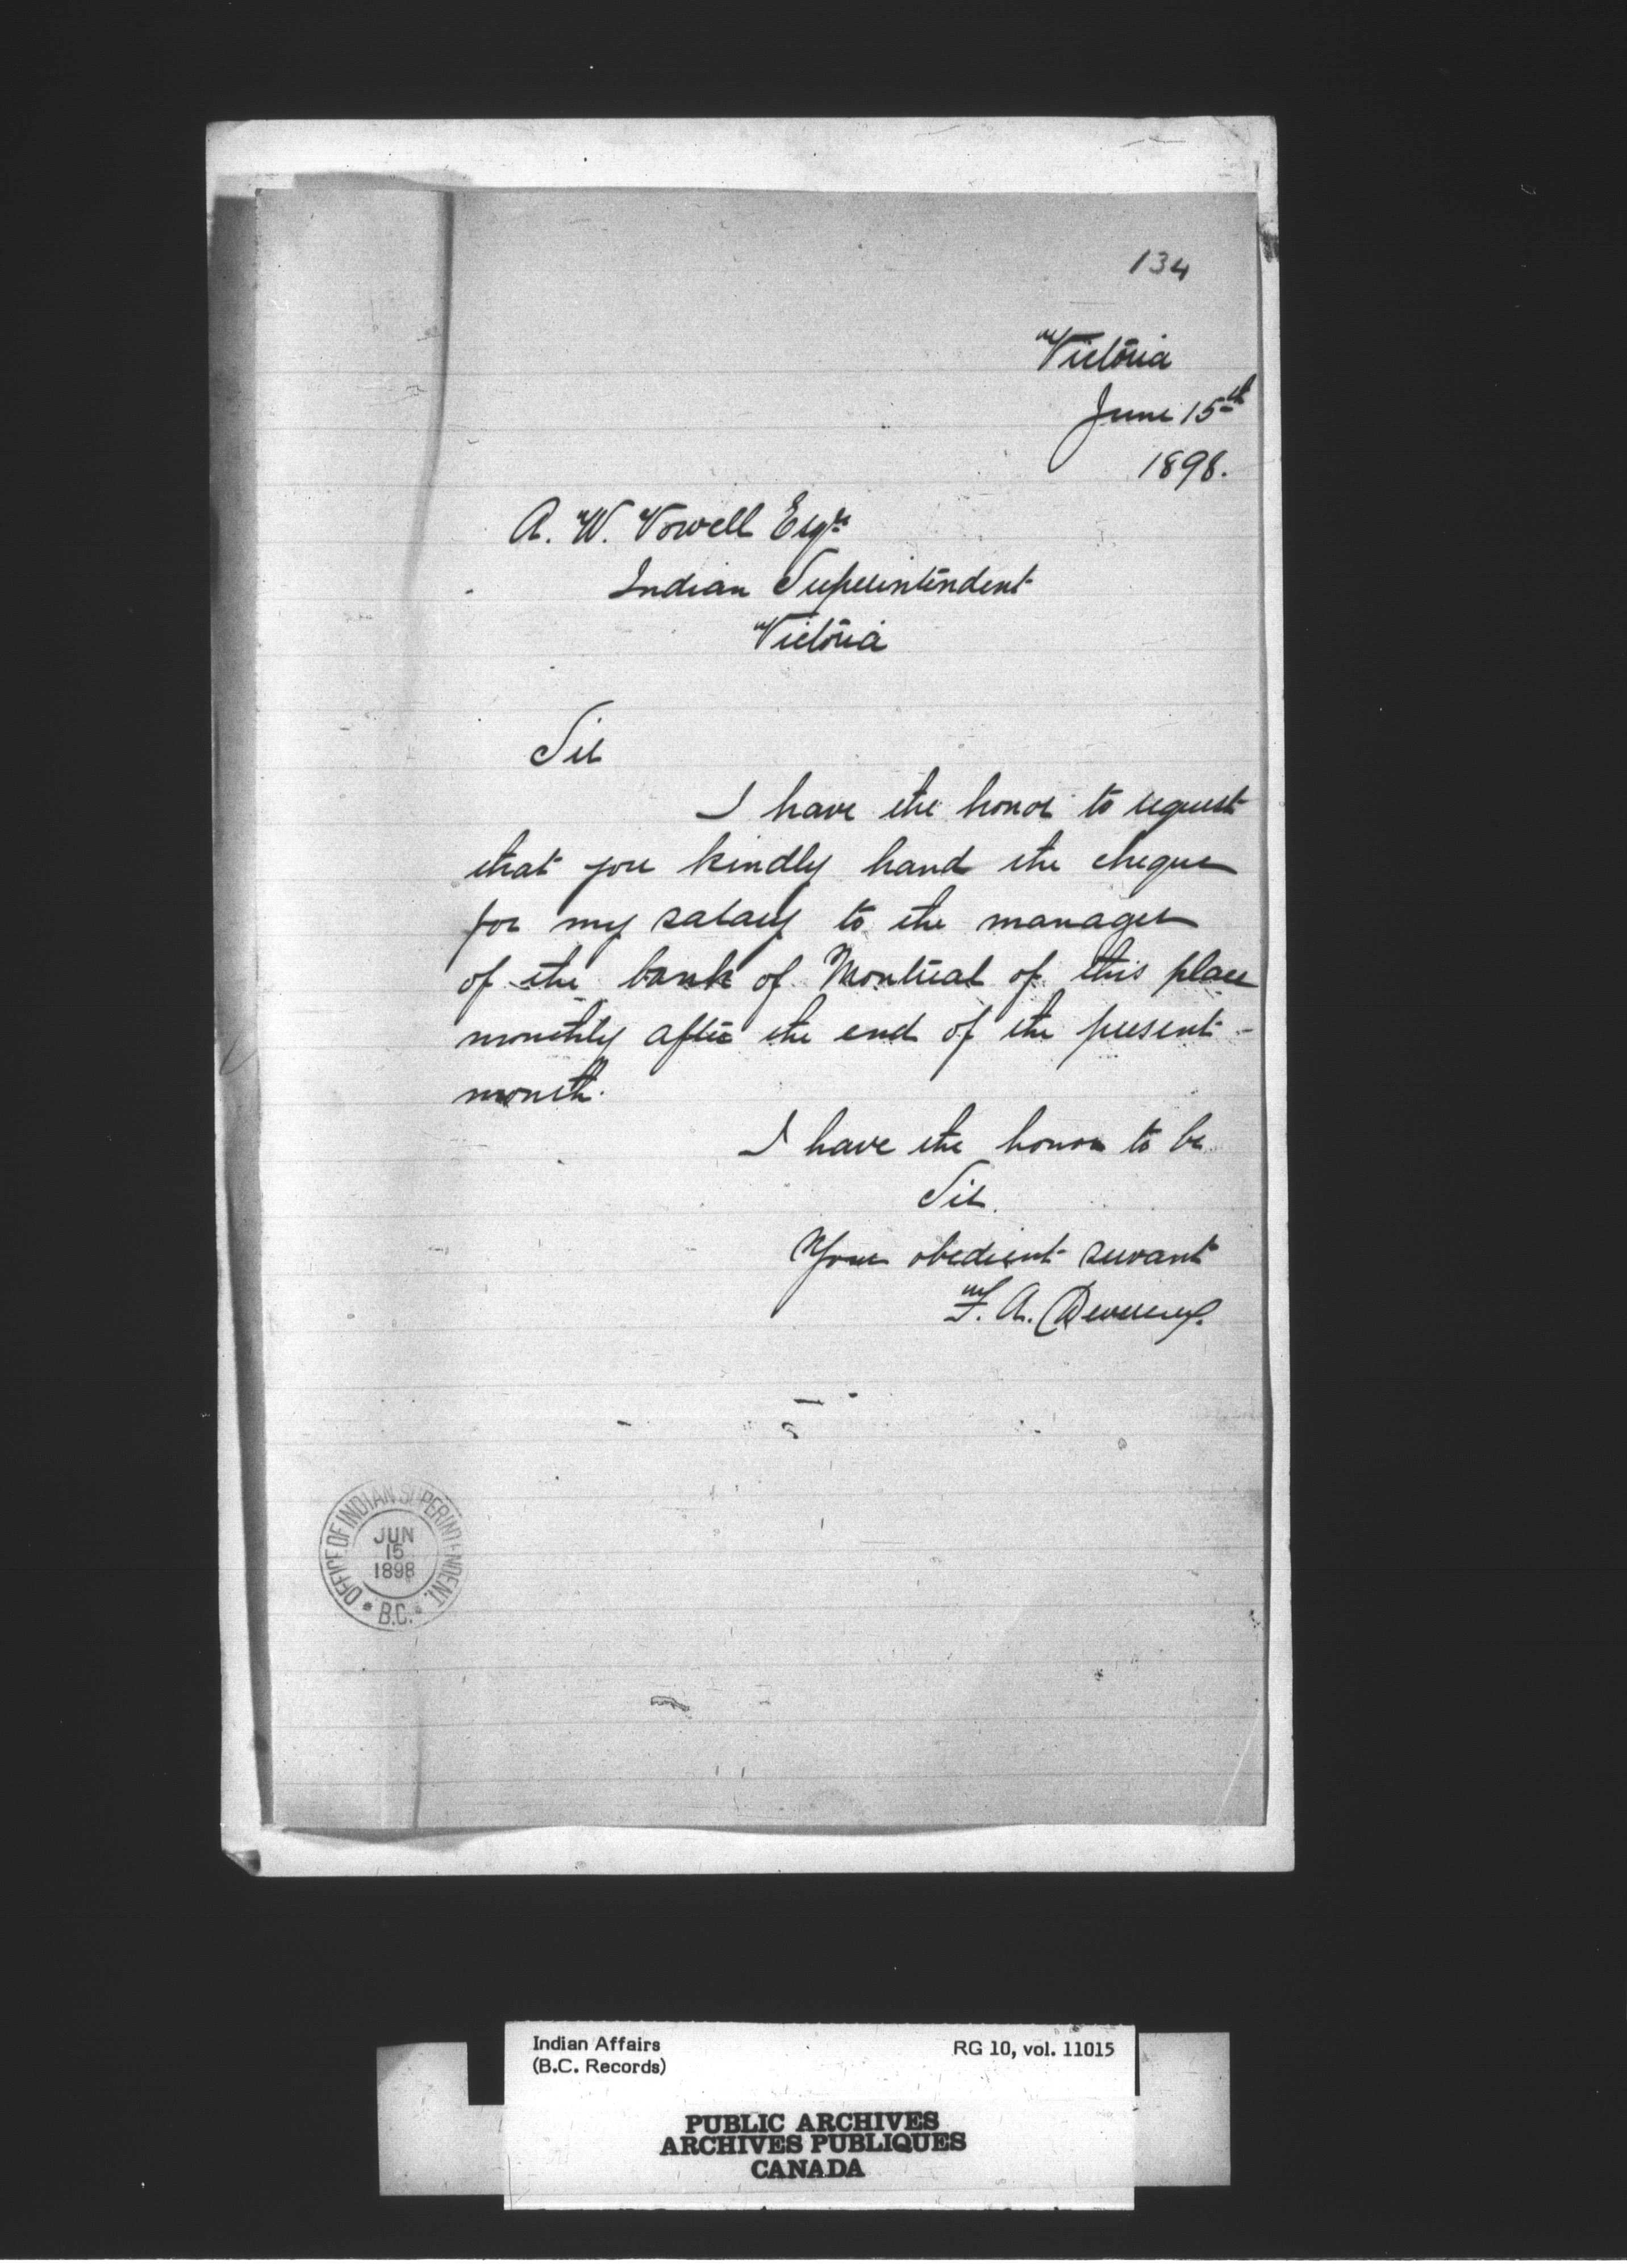 134
Victoria
June 15th
1898.
A. W. Vowell Esqre
Indian Superintendent
Victoria
Sir
I have the honor to request
that you kindly hand the cheque
for my salary to the manager
of the bank of Montreal of this place
monthly after the end of the present
month.
I have the honor to be
Sir.
Your obedient servant
F. A. Devereux.
OFFICE OF INDIAN SUPERINTENDENT.
JUN
15
1898
B.C.
Indian Affairs RG 10, vol. 11015
(B.C. Records)
PUBLIC ARCHIVES
ARCHIVES PUBLIQUES
CANADA